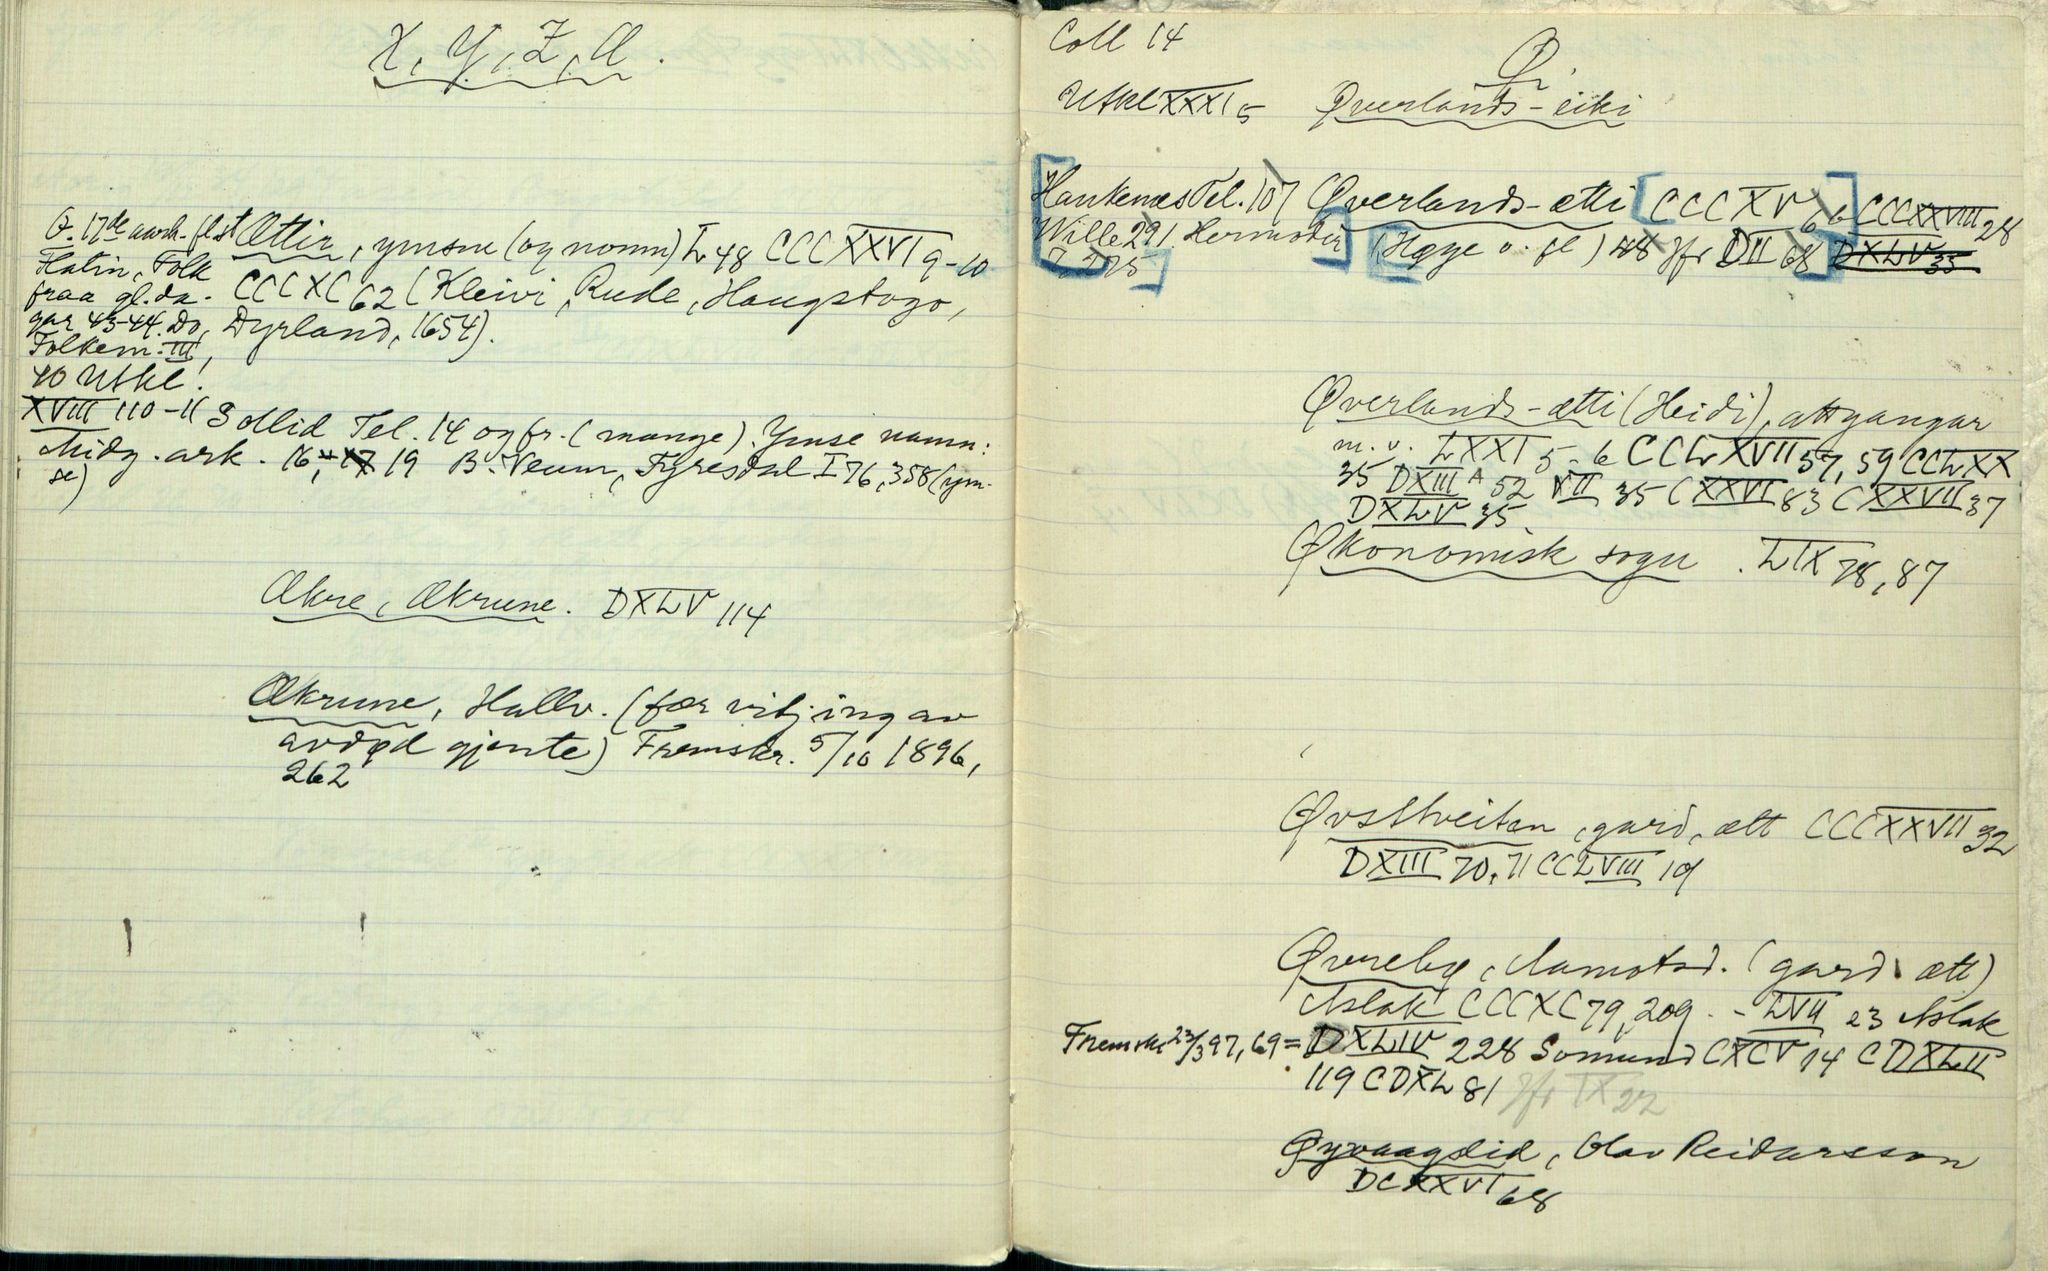 X, Y, Z, Æ.
Ættir, ymsne (og nomn) L 48 CCCXXVI 9-10
CCCXC 62 (Kleivi, Rude, Haugstogo,
Dyrland, 1654).
Flatin, Folk
fraa gl. da-
gar 43-44. Do,
Folkem. III,
40 Utkl!
XVIII 110-11 Sollid Tel. 14 og fr. (mange). Ymse namn:
Midg. ark. 16, 17 19 B. Veum, Fyresdal I 76, 358 (ym-
se)
Ækre, Ækrune. DXLV 114
Ækrune, Hallv. (fær vitjing av
avdød gjente) Fremskr. 5/10 1896,
262
Coll 14
Ø.
Utkl XXXI 5 Øverlands-eiki
Haukenæs Tel. 107 Øverlands-ætti [CCCXV 66] CCCXXVIII 28
Wille 291. Hermoder (Hegge o. fl) 48 Jfr DII 68] DXLV 35
7, 275]
Øverlands-ætti (Heidi), attgangar
m. v. LXXI 5-6 CCLXVII 57, 59 CCLXX
35 DXIII A 52 VII 35 CXXVI 83 CXXVII 37
DXLV 35
Økonomisk sogu. LIX 78, 87
Øvsttveiten, gard, ætt CCCXXVII 32
DXIII 70, 71 CCLVIII 19
Øvrebø, Aamotsd. (gard, ætt)
Aslak CCCXC 79, 209. - LVII 23 Aslak
Fremskr 23/3 97, 69 = DXLIV 228 Somund CXCV 14 CDXLII
119 CDXL 81 Jfr IX 22
Øyvaagslid, Olav Reidarsson
DCXXVI 68